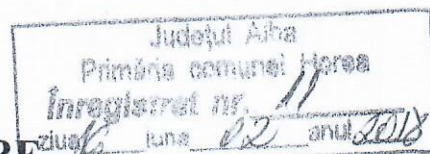 Județul Alba
Primăria comunei Horea
Înregistrat nr. 11
ziua 16 luna 02 anul 2018